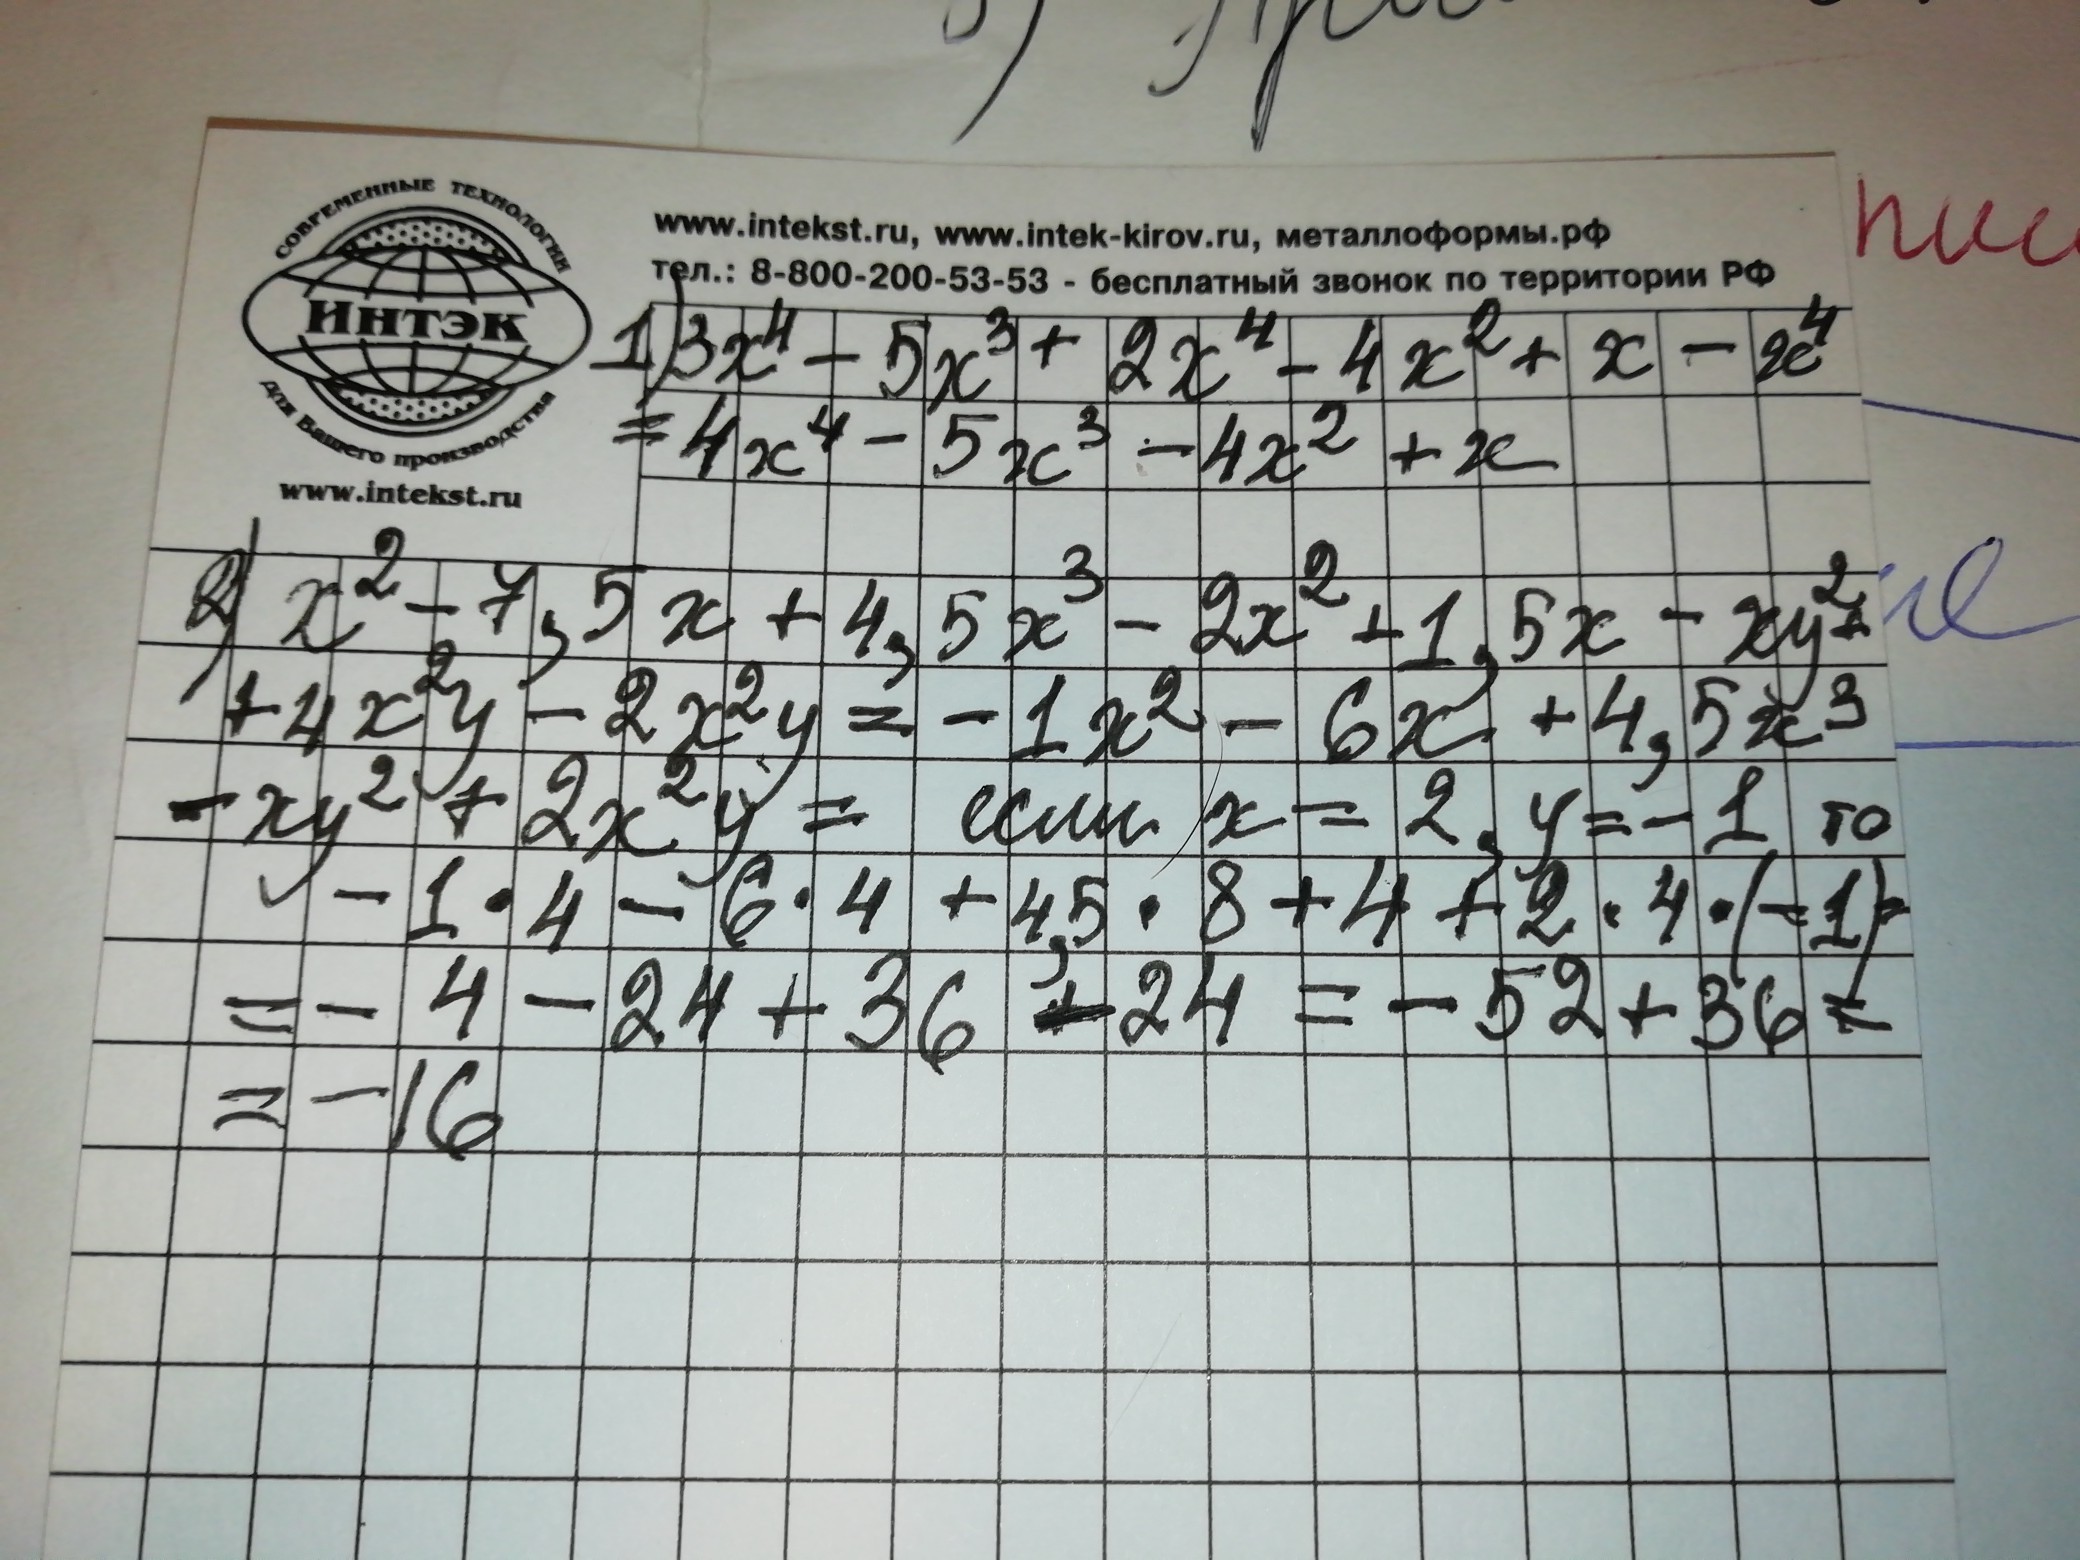 СОВРЕМЕННЫЕ ТЕХНОЛОГИИ
ИНТЭК
для Вашего производства
www.intekst.ru
www.intekst.ru, www.intek-kirov.ru, металлоформы.рф
тел.: 8-800-200-53-53 - бесплатный звонок по территории РФ
1) 3x⁴ - 5x³ + 2x⁴ - 4x² + x - x⁴
= 4x⁴ - 5x³ - 4x² + x
2) x² - 7,5x + 4,5x³ - 2x² + 1,5x - xy² +
+ 4x²y - 2x²y = - 1x² - 6x + 4,5x³
- xy² + 2x²y = если x = 2, y = - 1 то
- 1 · 4 - 6 · 4 + 4,5 · 8 + 4 + 2 · 4 · (-1) =
= - 4 - 24 + 36 - 24 = - 52 + 36 =
= - 16